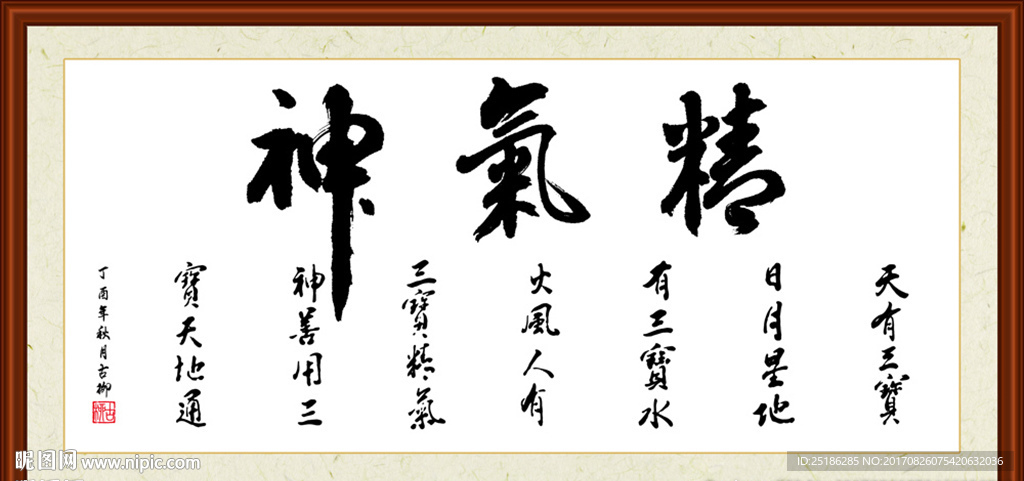 精氣神
天有三寶
日月星地
有三寶水
火風人有
三寶精氣
神善用三
寶天地通
丁酉年秋月古柳
昵图网 www.nipic.com
ID:25186285 NO:20170826075420632036